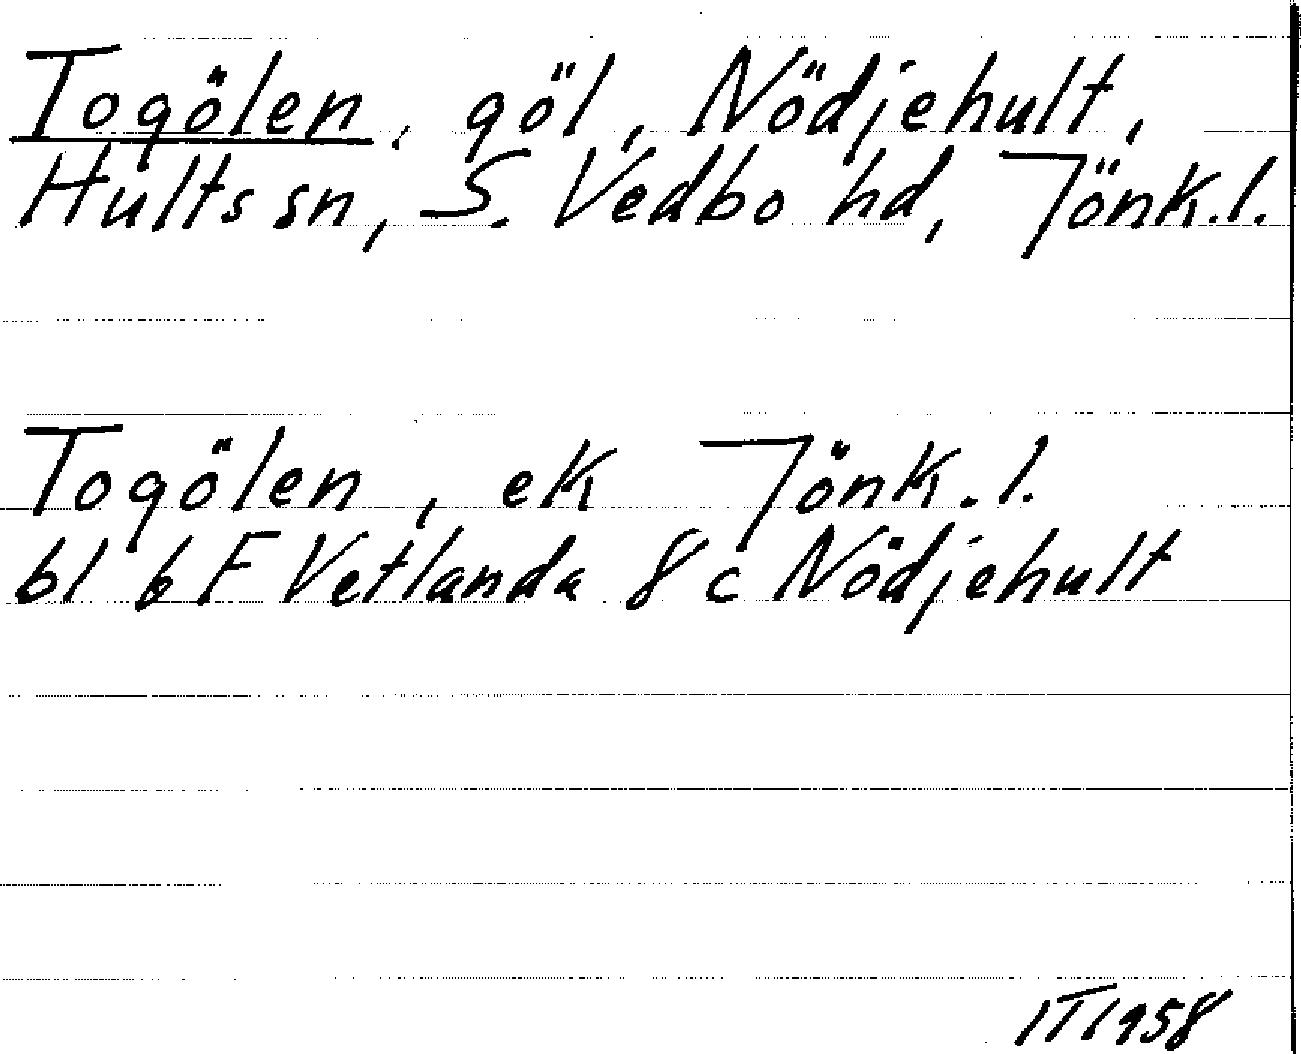 Togölen, göl, Nödjehult,
Hults sn, S. Vedbo hd, Jönk.l.
Togölen, ek Jönk.l.
bl 6 F Vetlanda 8 c Nödjehult
IT 1958